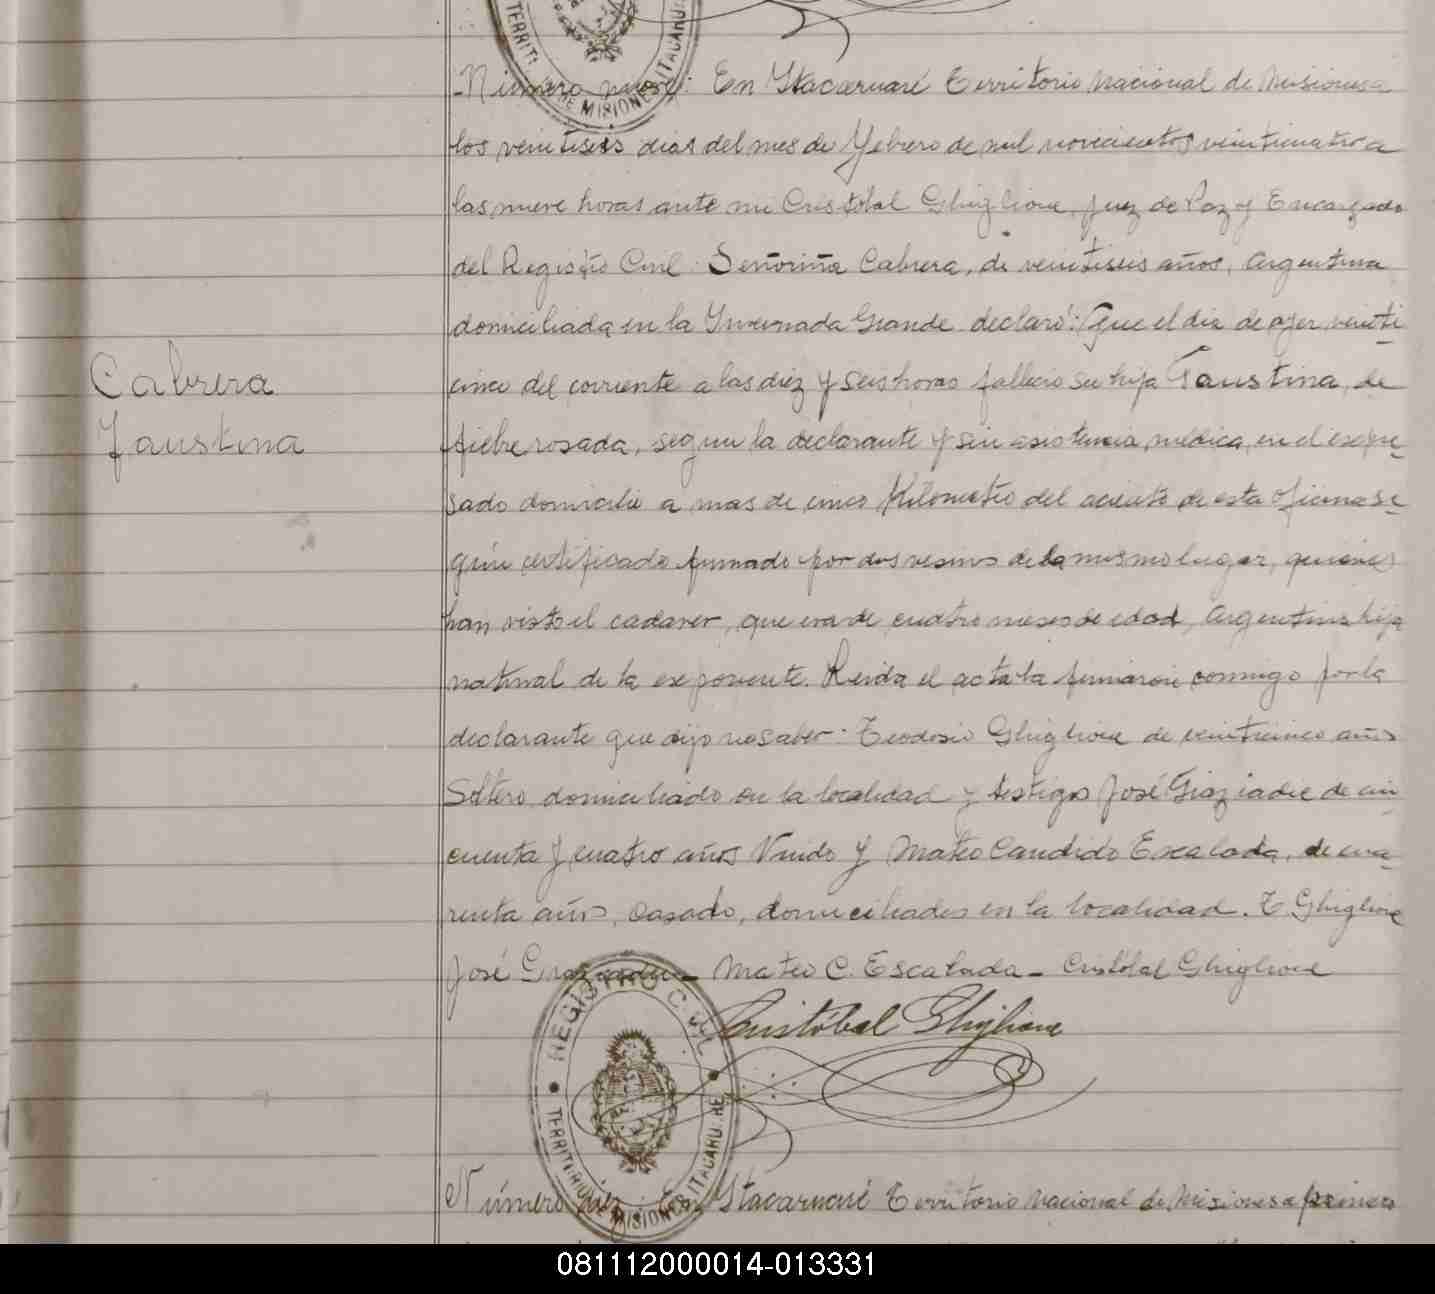 TERRIT. DE MISIONES ITACARUARE
Número nueve: En Itacaruaré Territorio Nacional de Misiones a
los veintiseis dias del mes de Febrero de mil novecientos veinticuatro a
las nueve horas ante mi Cristóbal Ghiglione, Juez de Paz y Encargado
del Registro Civil. Señorina Cabrera, de veintiseis años, Argentina
domiciliada en la Invernada Grande declaró: Que el dia de ayer veinti
cinco del corriente a las diez y seis horas fallecio su hija Faustina, de
fiebre rosada, segun la declarante y sin asistencia médica, en el expre
sado domicilio a mas de cinco Kilometro del aciento de esta oficina se
gún certificado firmado por dos vesinos de la mismo lugar, quienes
han visto el cadaver, que era de cuatro meses de edad, Argentina hija
natural de la exponente. Leida el acta la firmaron conmigo por la
declarante que dijo no saber: Teodosio Ghiglione de veinticinco años
Soltero domiciliado en la localidad y testigos José Graziadie de cin
cuenta y cuatro años Viudo y Mateo Candido Escalada, de cua
renta años, Casado, domiciliados en la localidad. T. Ghiglione
José Graziadie - Mateo C. Escalada - Cristóbal Ghiglione
Cabrera
Faustina
Cristóbal Ghiglione
REGISTRO CIVIL
TERRITORIO MISIONES ITACARUARE
Número diez: En Itacaruaré Territorio Nacional de Misiones a primero
081112000014-013331